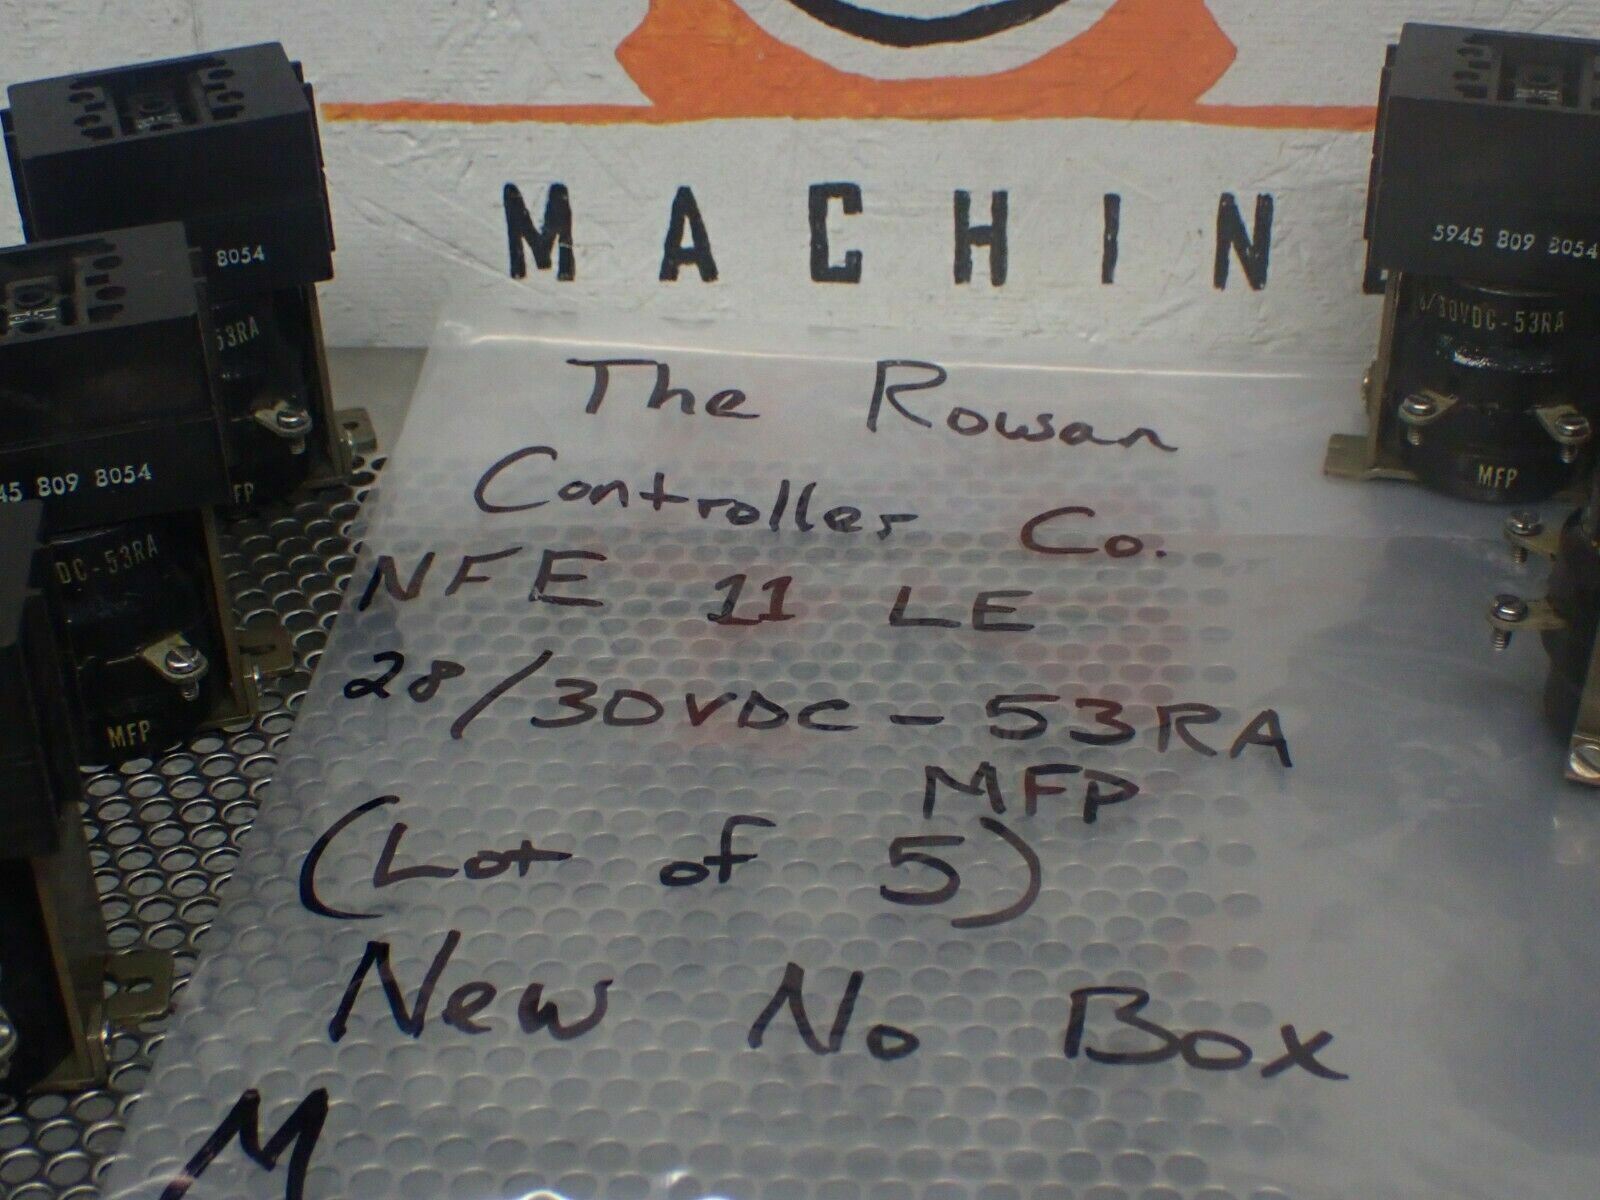 MACHIN
8054
53RA
FP
45 809 8054
DC-53RA
MFP
5945 809 8054
/30VDC-53RA
MFP
The Rowan
Controller Co.
NFE 11 LE
28/30VDC-53RA
MFP
(Lot of 5)
New No Box
M